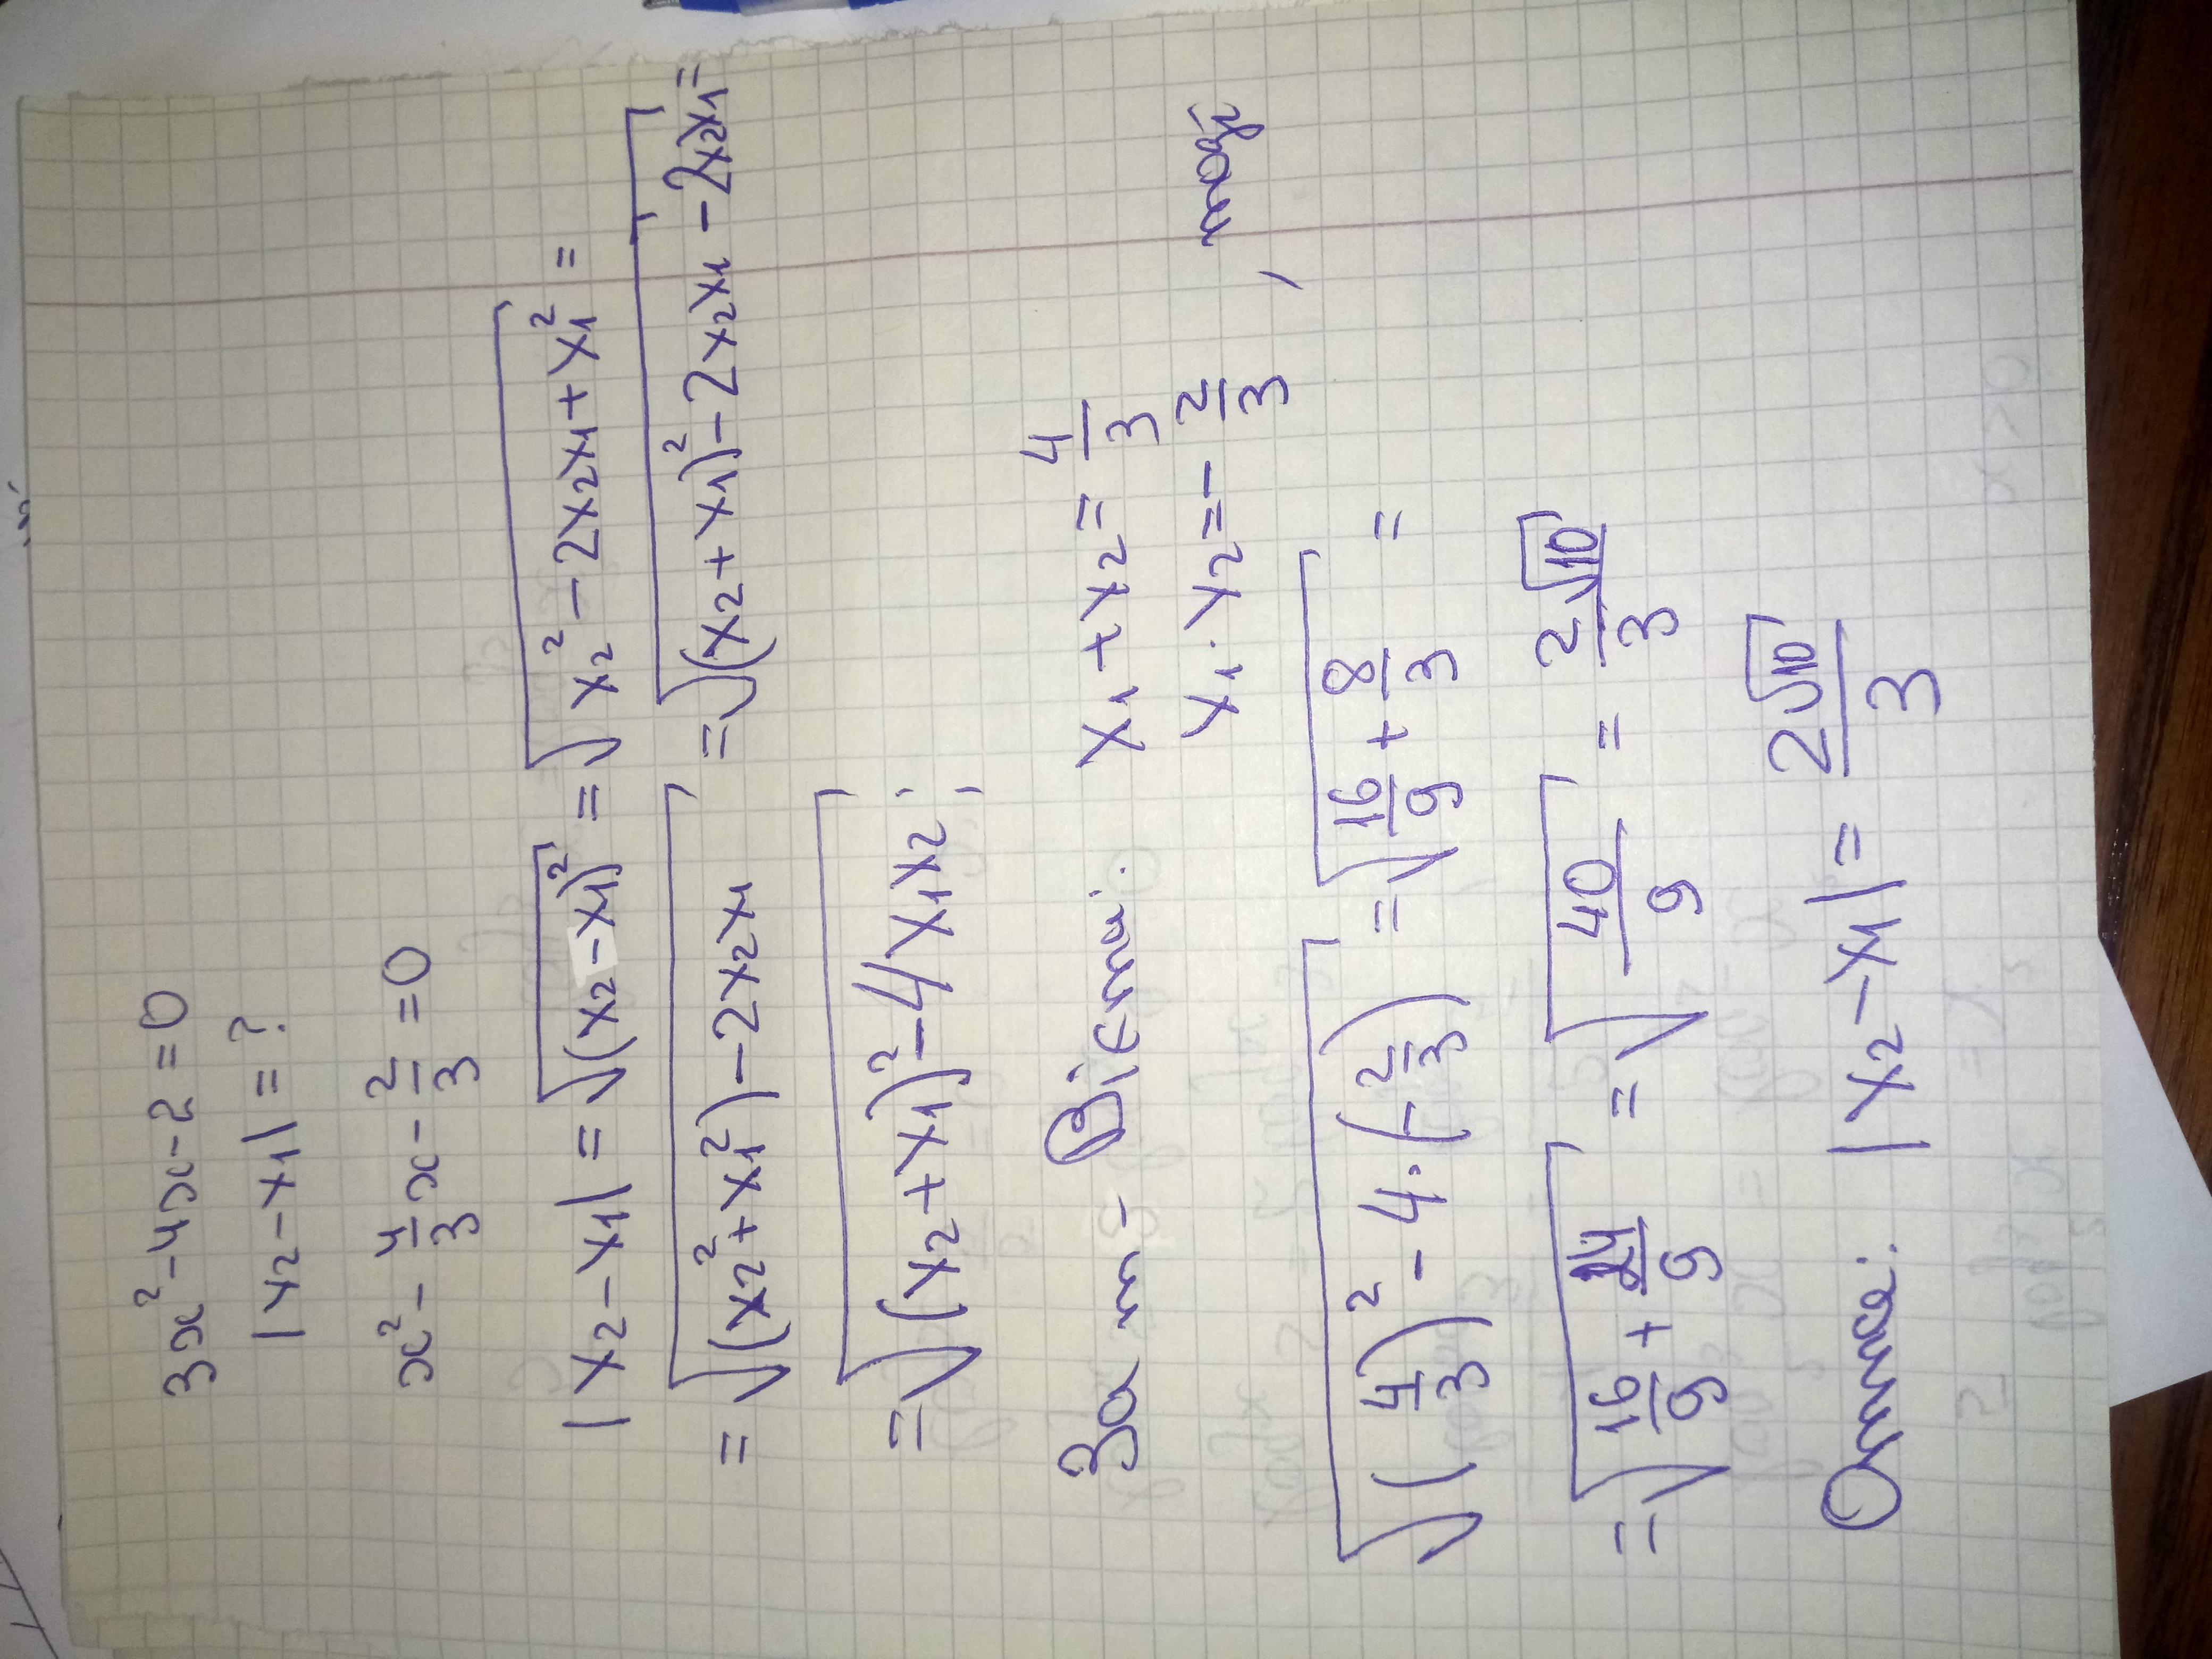 3x² - 4x - 2 = 0
|x₂ - x₁| = ?
x² - 4/3 x - 2/3 = 0
|x₂ - x₁| = √((x₂ - x₁)²) = √(x₂² - 2x₂x₁ + x₁²) =
= √((x₂² + x₁²) - 2x₂x₁) = √((x₂ + x₁)² - 2x₂x₁ - 2x₂x₁) =
= √((x₂ + x₁)² - 4x₁x₂) ;
За т- Вієта: x₁ + x₂ = 4/3
x₁ · x₂ = - 2/3 , тоді
√((4/3)² - 4 · (-2/3)) = √(16/9 + 8/3) =
= √(16/9 + 24/9) = √(40/9) = 2√10/3
Отже: |x₂ - x₁| = 2√10/3